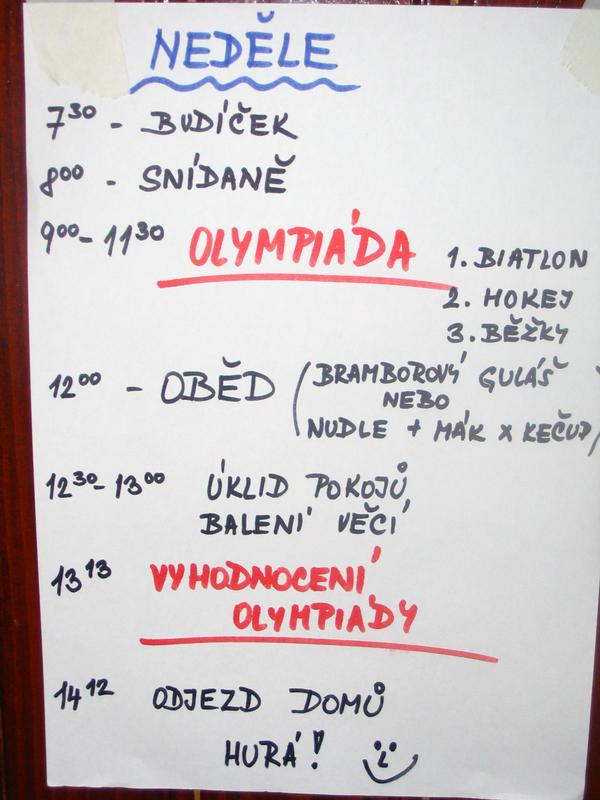 NEDĚLE
7³⁰ - BUDÍČEK
8⁰⁰ - SNÍDANĚ
9⁰⁰- 11³⁰ OLYMPIÁDA
1. BIATLON
2. HOKEJ
3. BĚŽKY
12⁰⁰ - OBĚD (BRAMBOROVÝ GULÁŠ
NEBO
NUDLE + MÁK X KEČUP)
12³⁰- 13⁰⁰ ÚKLID POKOJŮ,
BALENÍ VĚCÍ
13¹³ VYHODNOCENÍ
OLYMPIÁDY
14¹² ODJEZD DOMŮ
HURÁ!